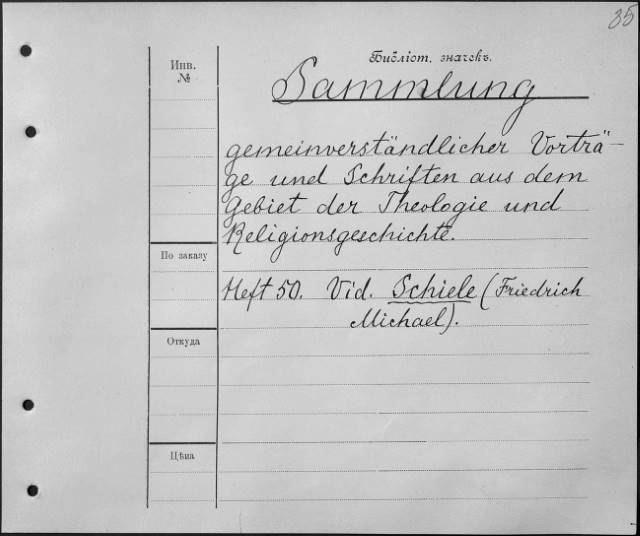 35
Инв.
№
Библіот. значекъ.
Sammlung
gemeinverständlicher Vorträ-
ge und Schriften aus dem
Gebiet der Theologie und
Religionsgeschichte.
По заказу
Heft 50. Vid. Schiele (Friedrich
Michael).
Откуда
Цѣна